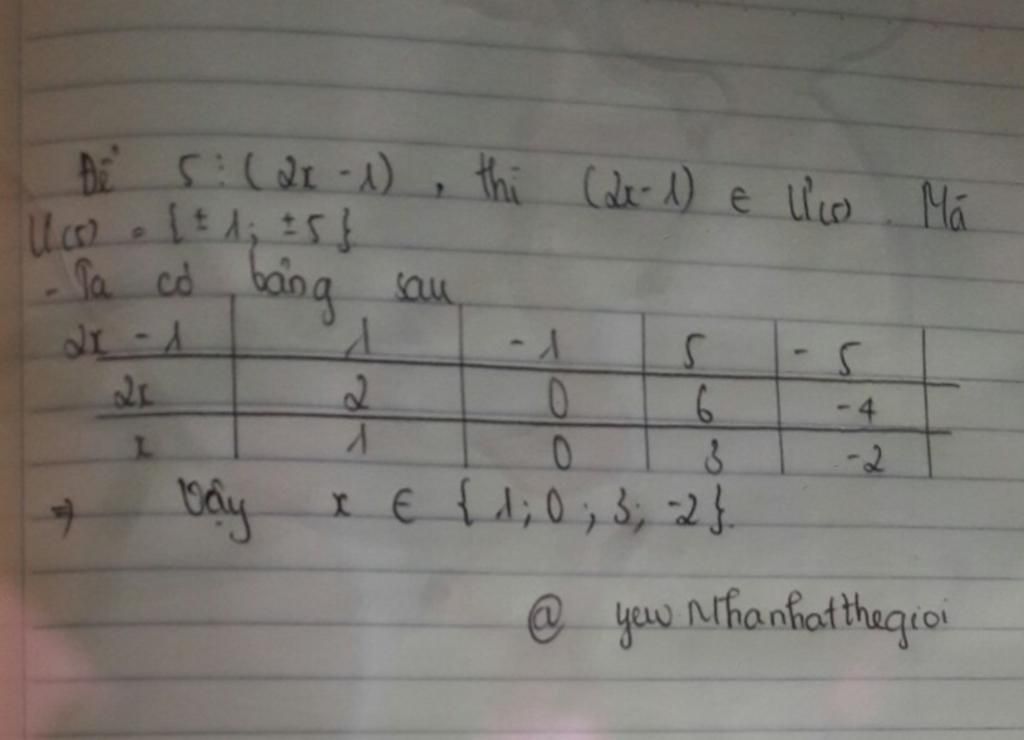 Để 5 ⋮ (2x - 1), thì (2x - 1) ∈ Ư(5). Mà
Ư(5) = {±1; ±5}
- Ta có bảng sau
2x - 1 1 -1 5 -5
2x 2 0 6 -4
x 1 0 3 -2
⇒ Vậy x ∈ {1; 0; 3; -2}.
@ yew Nhanhatthegioi